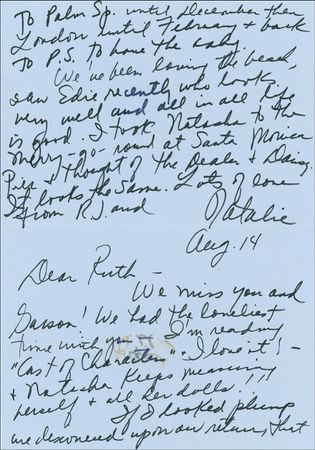 To Palm Sp. until December then
London until February & back
To P.S. to have the baby.
We've been loving the beach,
saw Edie recently who looks
very well and all in all life
is good. I took Natasha to the
merry-go-round at Santa Monica
Pier & thought of the Dealer & Daisy.
It looks the same. Lots of love
from R.J. and
Natalie
Aug. 14
Dear Ruth -
We miss you and
Garson! We had the loveliest
time with you. I'm reading
"Cast of Characters". I love it! -
& Natasha keeps measuring
herself & all her dolls!!!
If I looked plump
we discovered upon our return, that